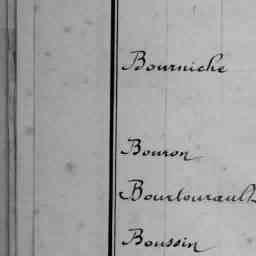 Bourniche
Bouron
Bourlourault
Boussin